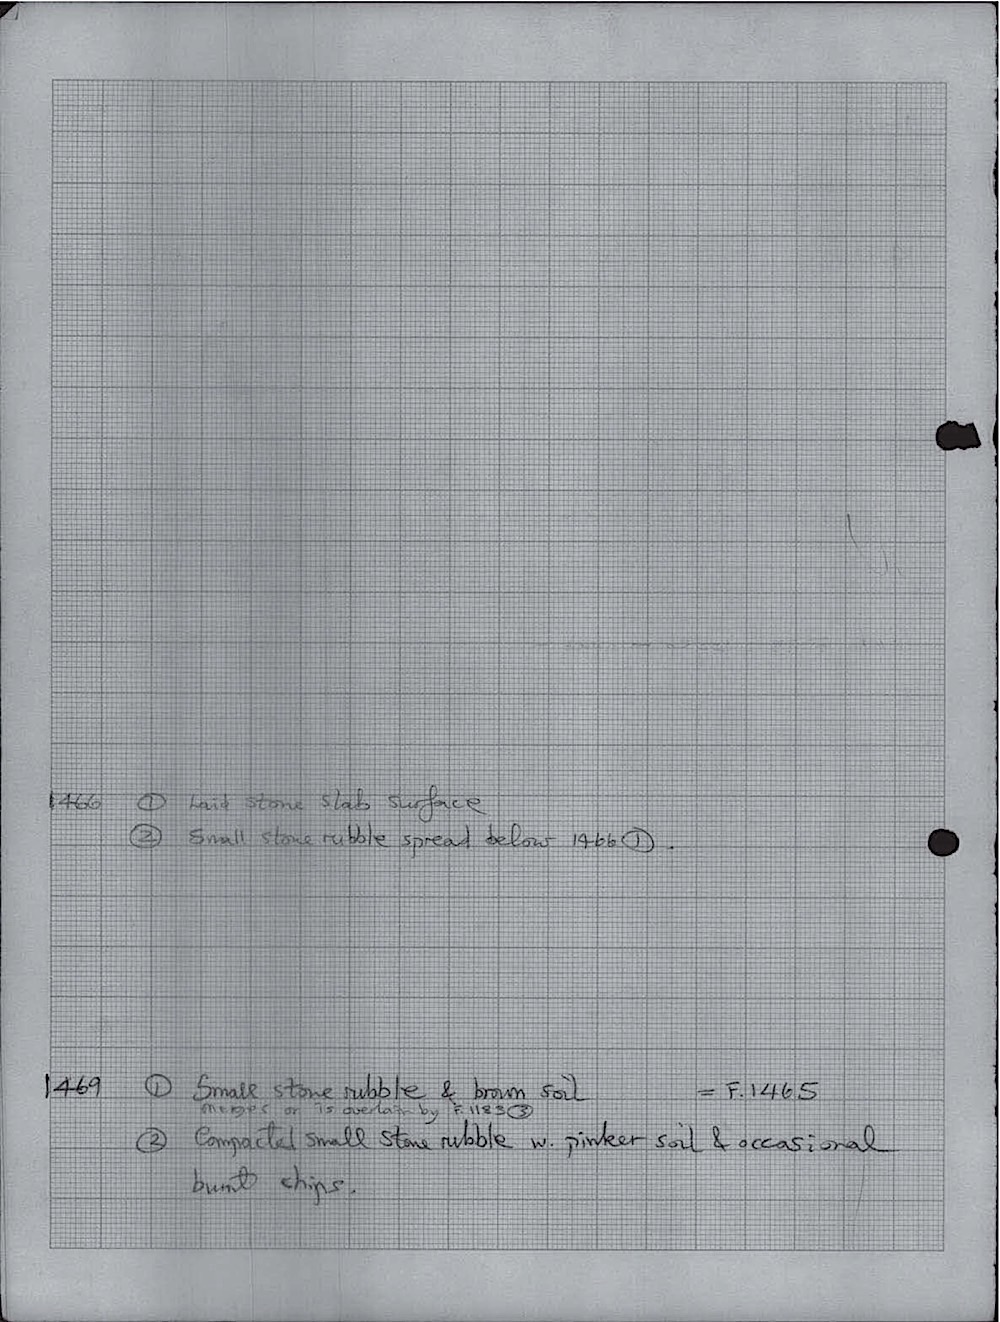 1466 ① Laid stone slab surface
② Small stone rubble spread below 1466①.
1469 ① Small stone rubble & brown soil = F.1465
merges or is overlain by F.1183③
② Compacted small stone rubble w. pinker soil & occasional
burnt chips.